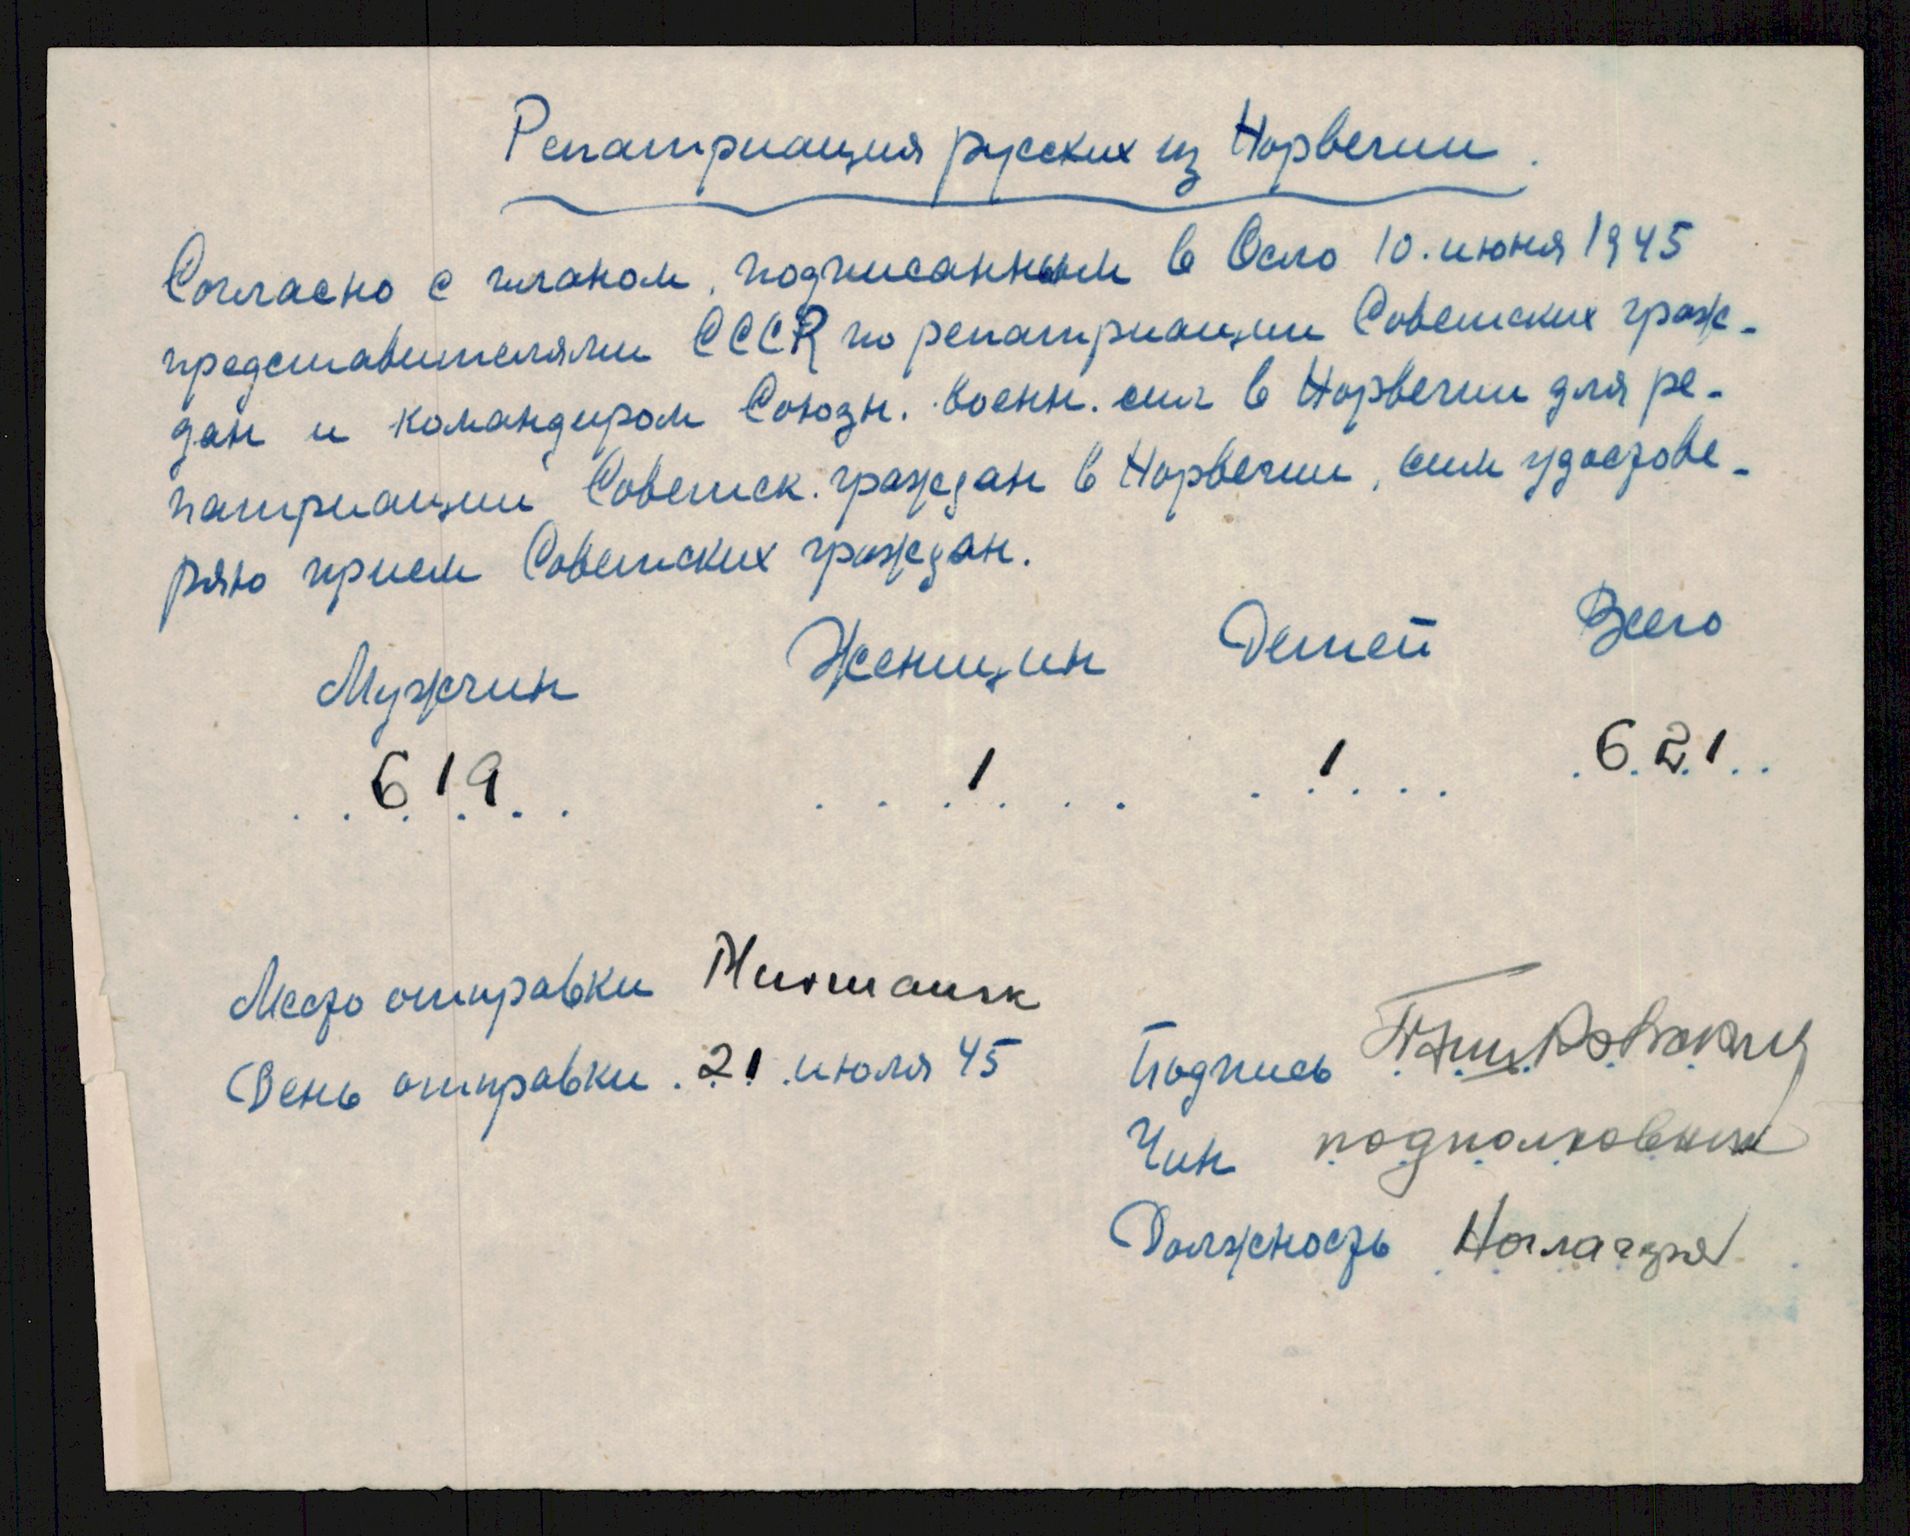 Репатриация русских из Норвегии.
Согласно с планом, подписанным в Осло 10. июня 1945
представителями СССR по репатриации Советских граж-
дан и командиром Союзн. военн. сил в Норвегии для ре-
патриации Советск. граждан в Норвегии, сим удостове-
ряю прием Советских граждан.
Мужчин Женщин Детей Всего
..619.. ..1... ..1... .621..
Место отправки
День отправки .21.июля 45
Подпись
Чин подполковник
Должность